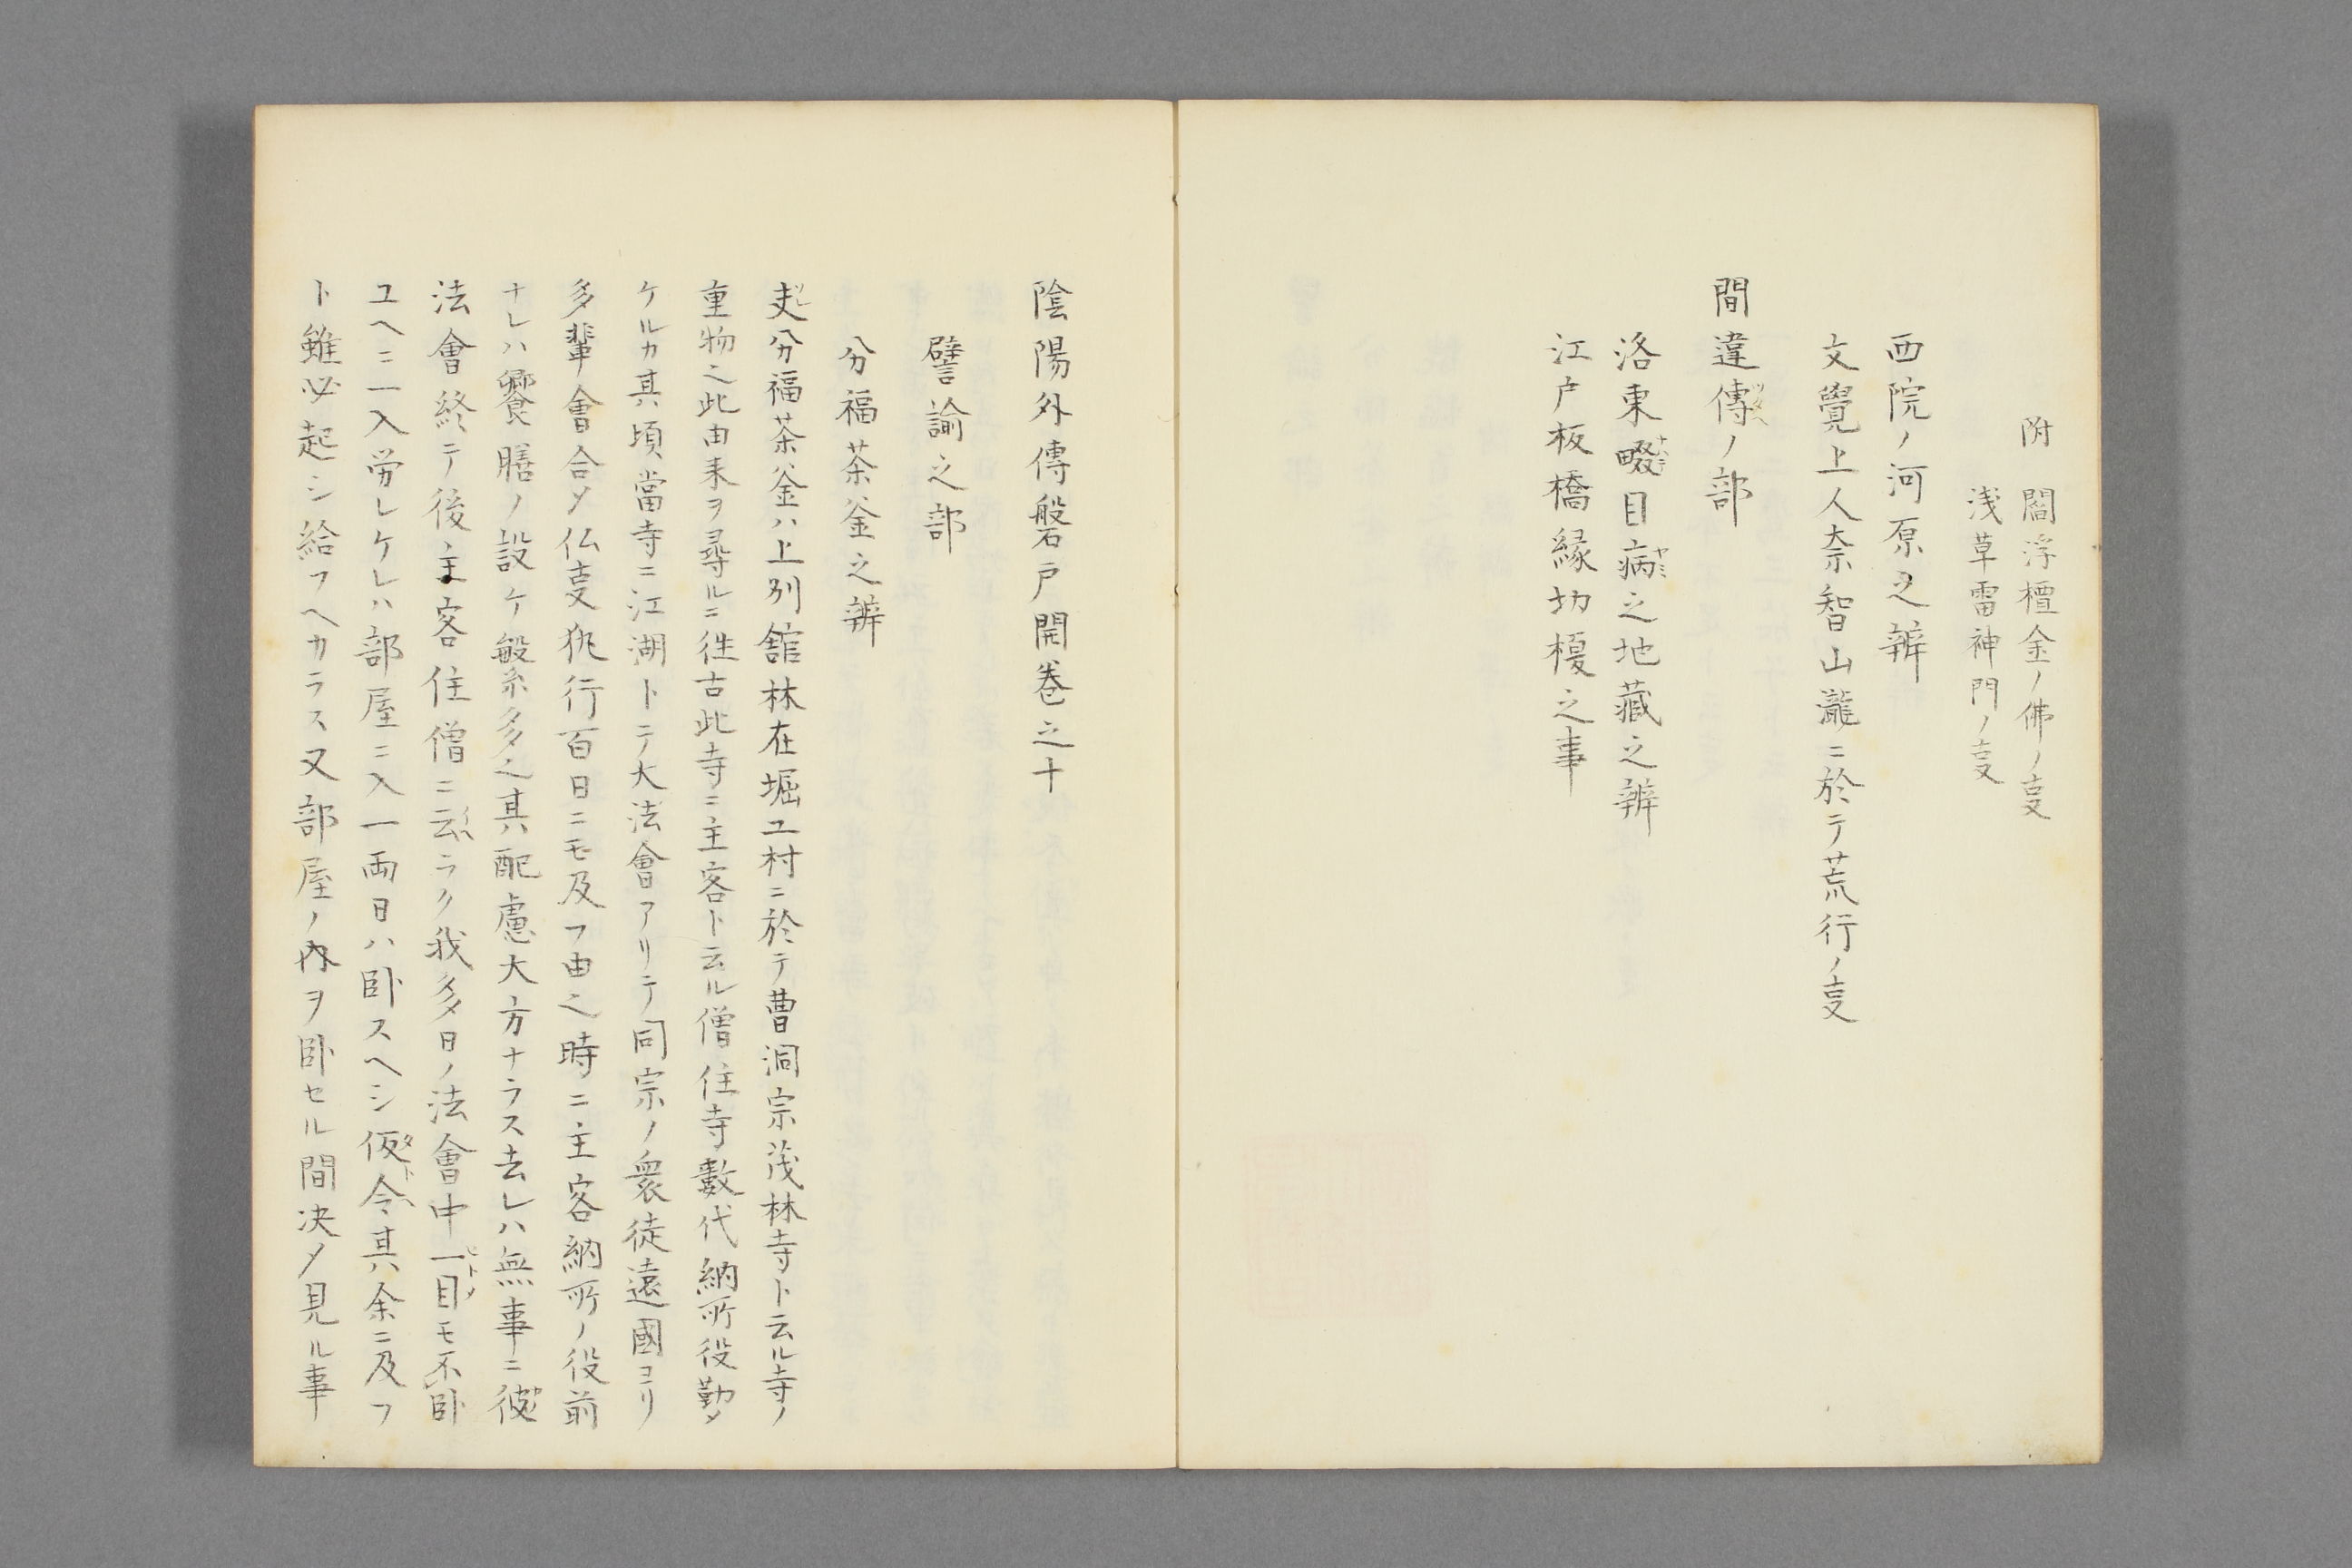 附 閻浮檀金ノ佛ノ叓
浅草雷神門ノ叓
西院ノ河原之辨
文覺上人奈智山瀧ニ於テ荒行ノ叓
間違傳ノ部
洛東畷目病之地藏之辨
江戸板橋縁切榎之事
陰陽外傳磐戸開巻之十
譬諭之部
分福茶釜之辨
夫分福茶釜ハ上刕舘林在堀エ村ニ於テ曹洞宗茂林寺ト云ル寺ノ
重物之此由来ヲ尋ルニ徃古此寺ニ主客ト云ル僧住寺數代納所役勤メ
ケルカ其頃當寺ニ江湖トテ大法會アリテ同宗ノ衆徒遠國ヨリ
多輩會合メ仏叓執行百日ニモ及フ由之時ニ主客納所ノ役前
ナレハ饗膳ノ設ケ繁多之其配慮大方ナラス去レハ無事ニ彼
法會終テ後主客住僧ニ云ラク我多日ノ法會中一目モ不臥
ユヘニ一入労レケレハ部屋ニ入一両日ハ臥スヘシ仮令其余ニ及フ
ト雖必起シ給フヘカラス又部屋ノ内ヲ臥セル間决メ見ル事